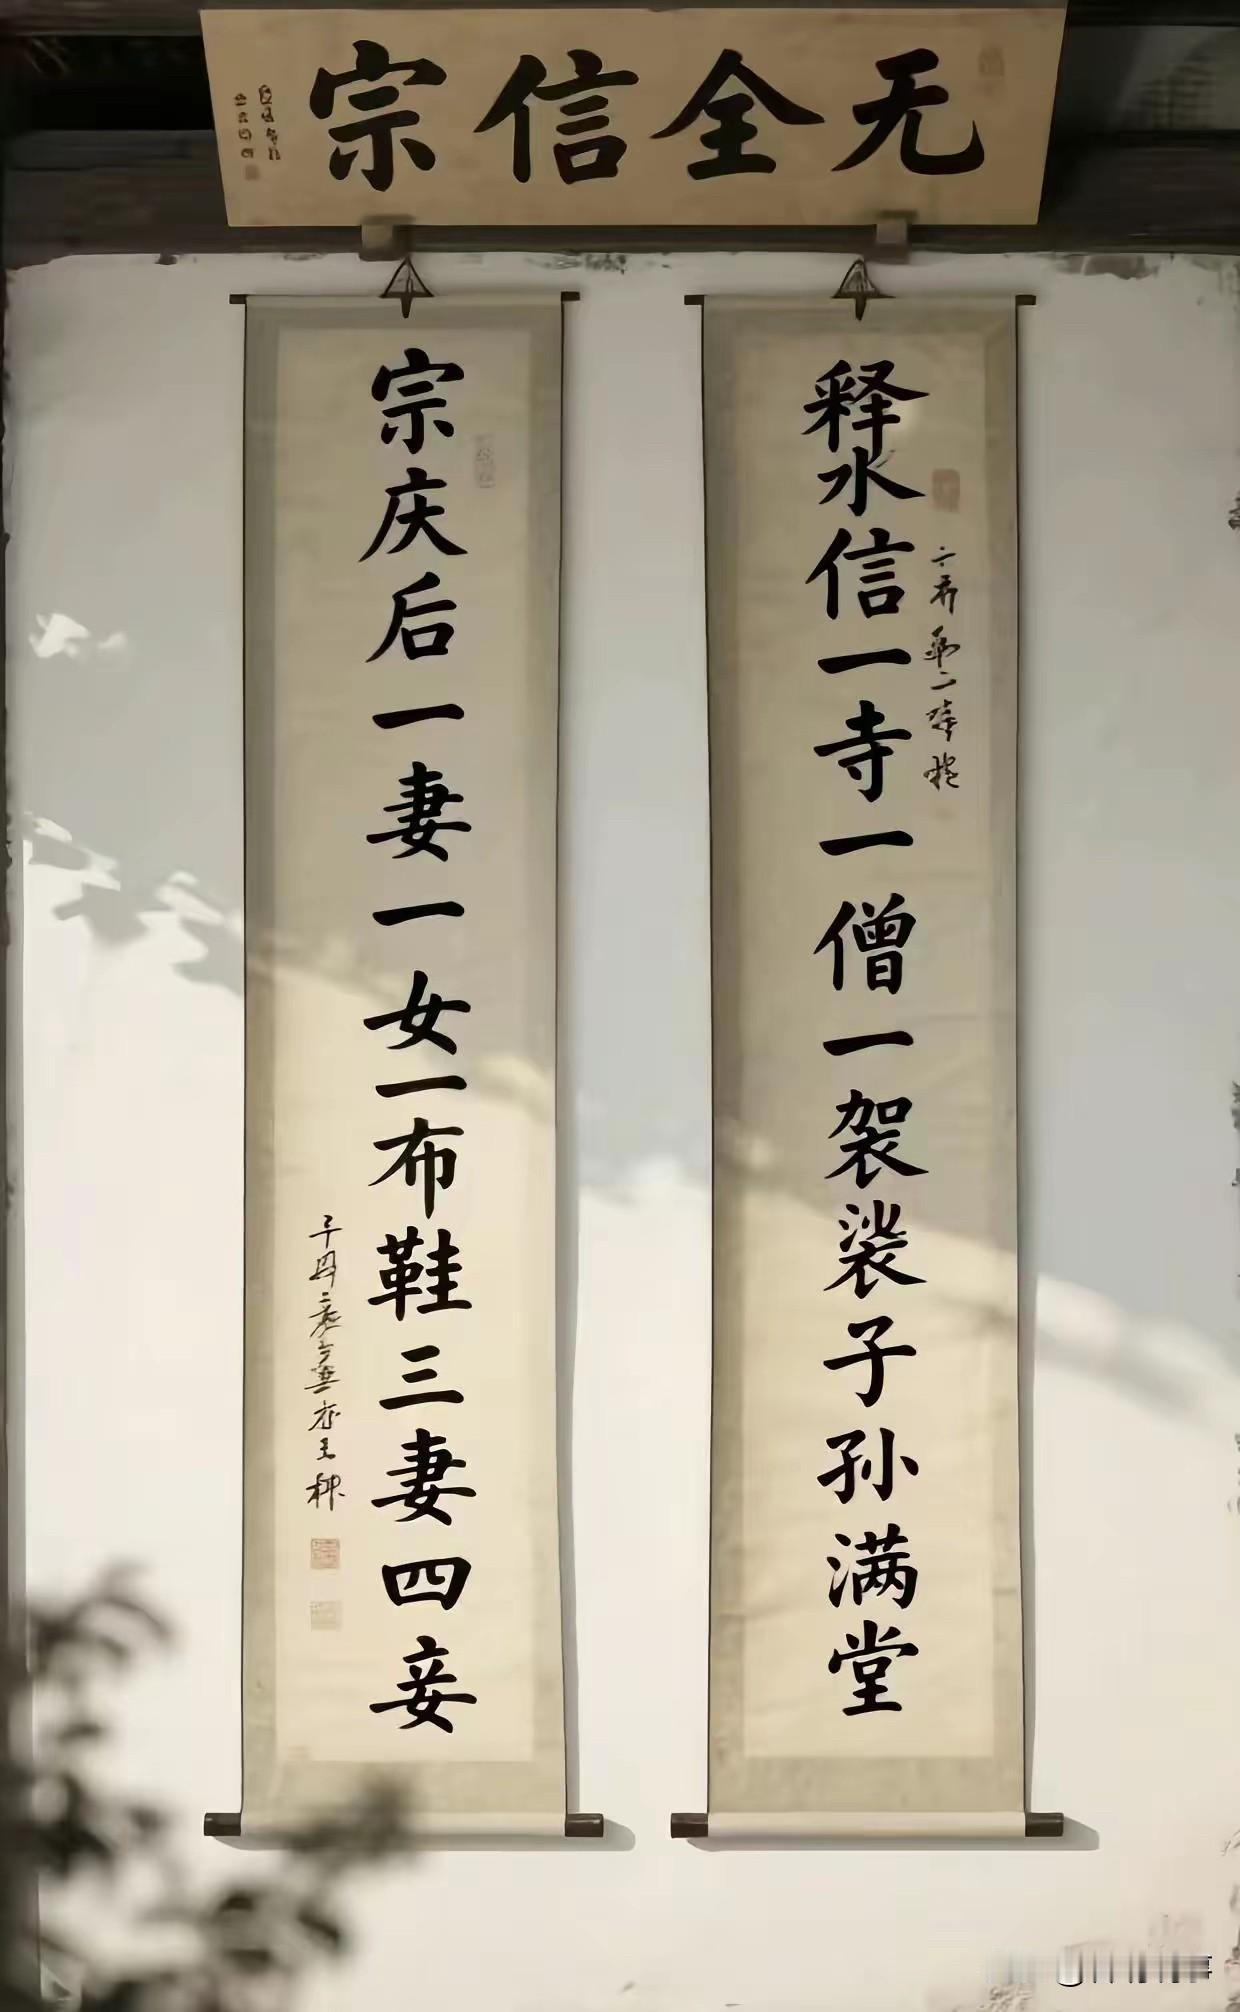 宗信全无
释水信一寺一僧一袈裟子孙满堂
宗庆后一妻一女一布鞋三妻四妾